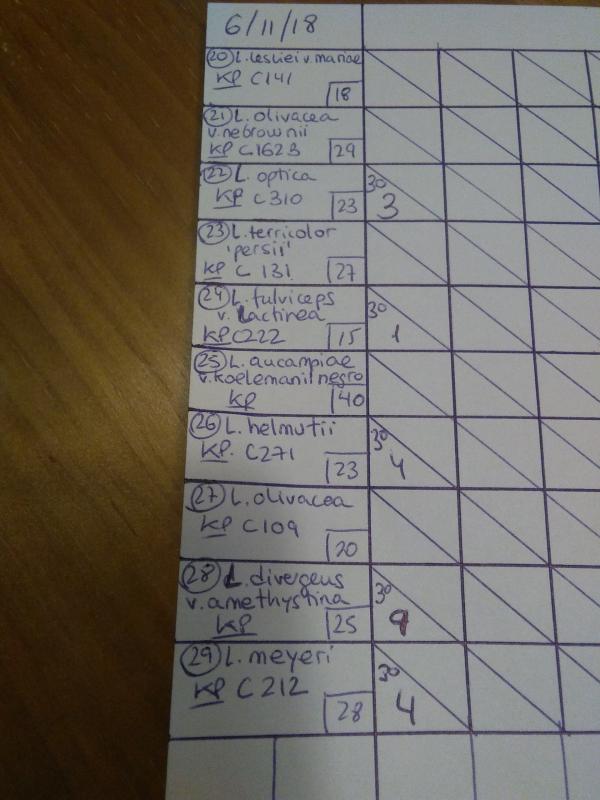 6/11/18
20 L. lesliei v. mariae
KP C141
18
21 L. olivacea
v. nebrownii
KP C162B
29
22 L. optica
KP C310
23
30
3
23 L. terricolor
'persii'
KP C 131
27
24 L. fulviceps
v. Lactinea
KP C222
15
30
1
25 L. aucampiae
v. koelemanii negro
KP
40
26 L. helmutii
KP. C271
23
30
4
27 L. olivacea
KP C109
20
28 L. divergeus
v. amethystina
KP
25
30
9
29 L. meyeri
KP C212
28
30
4